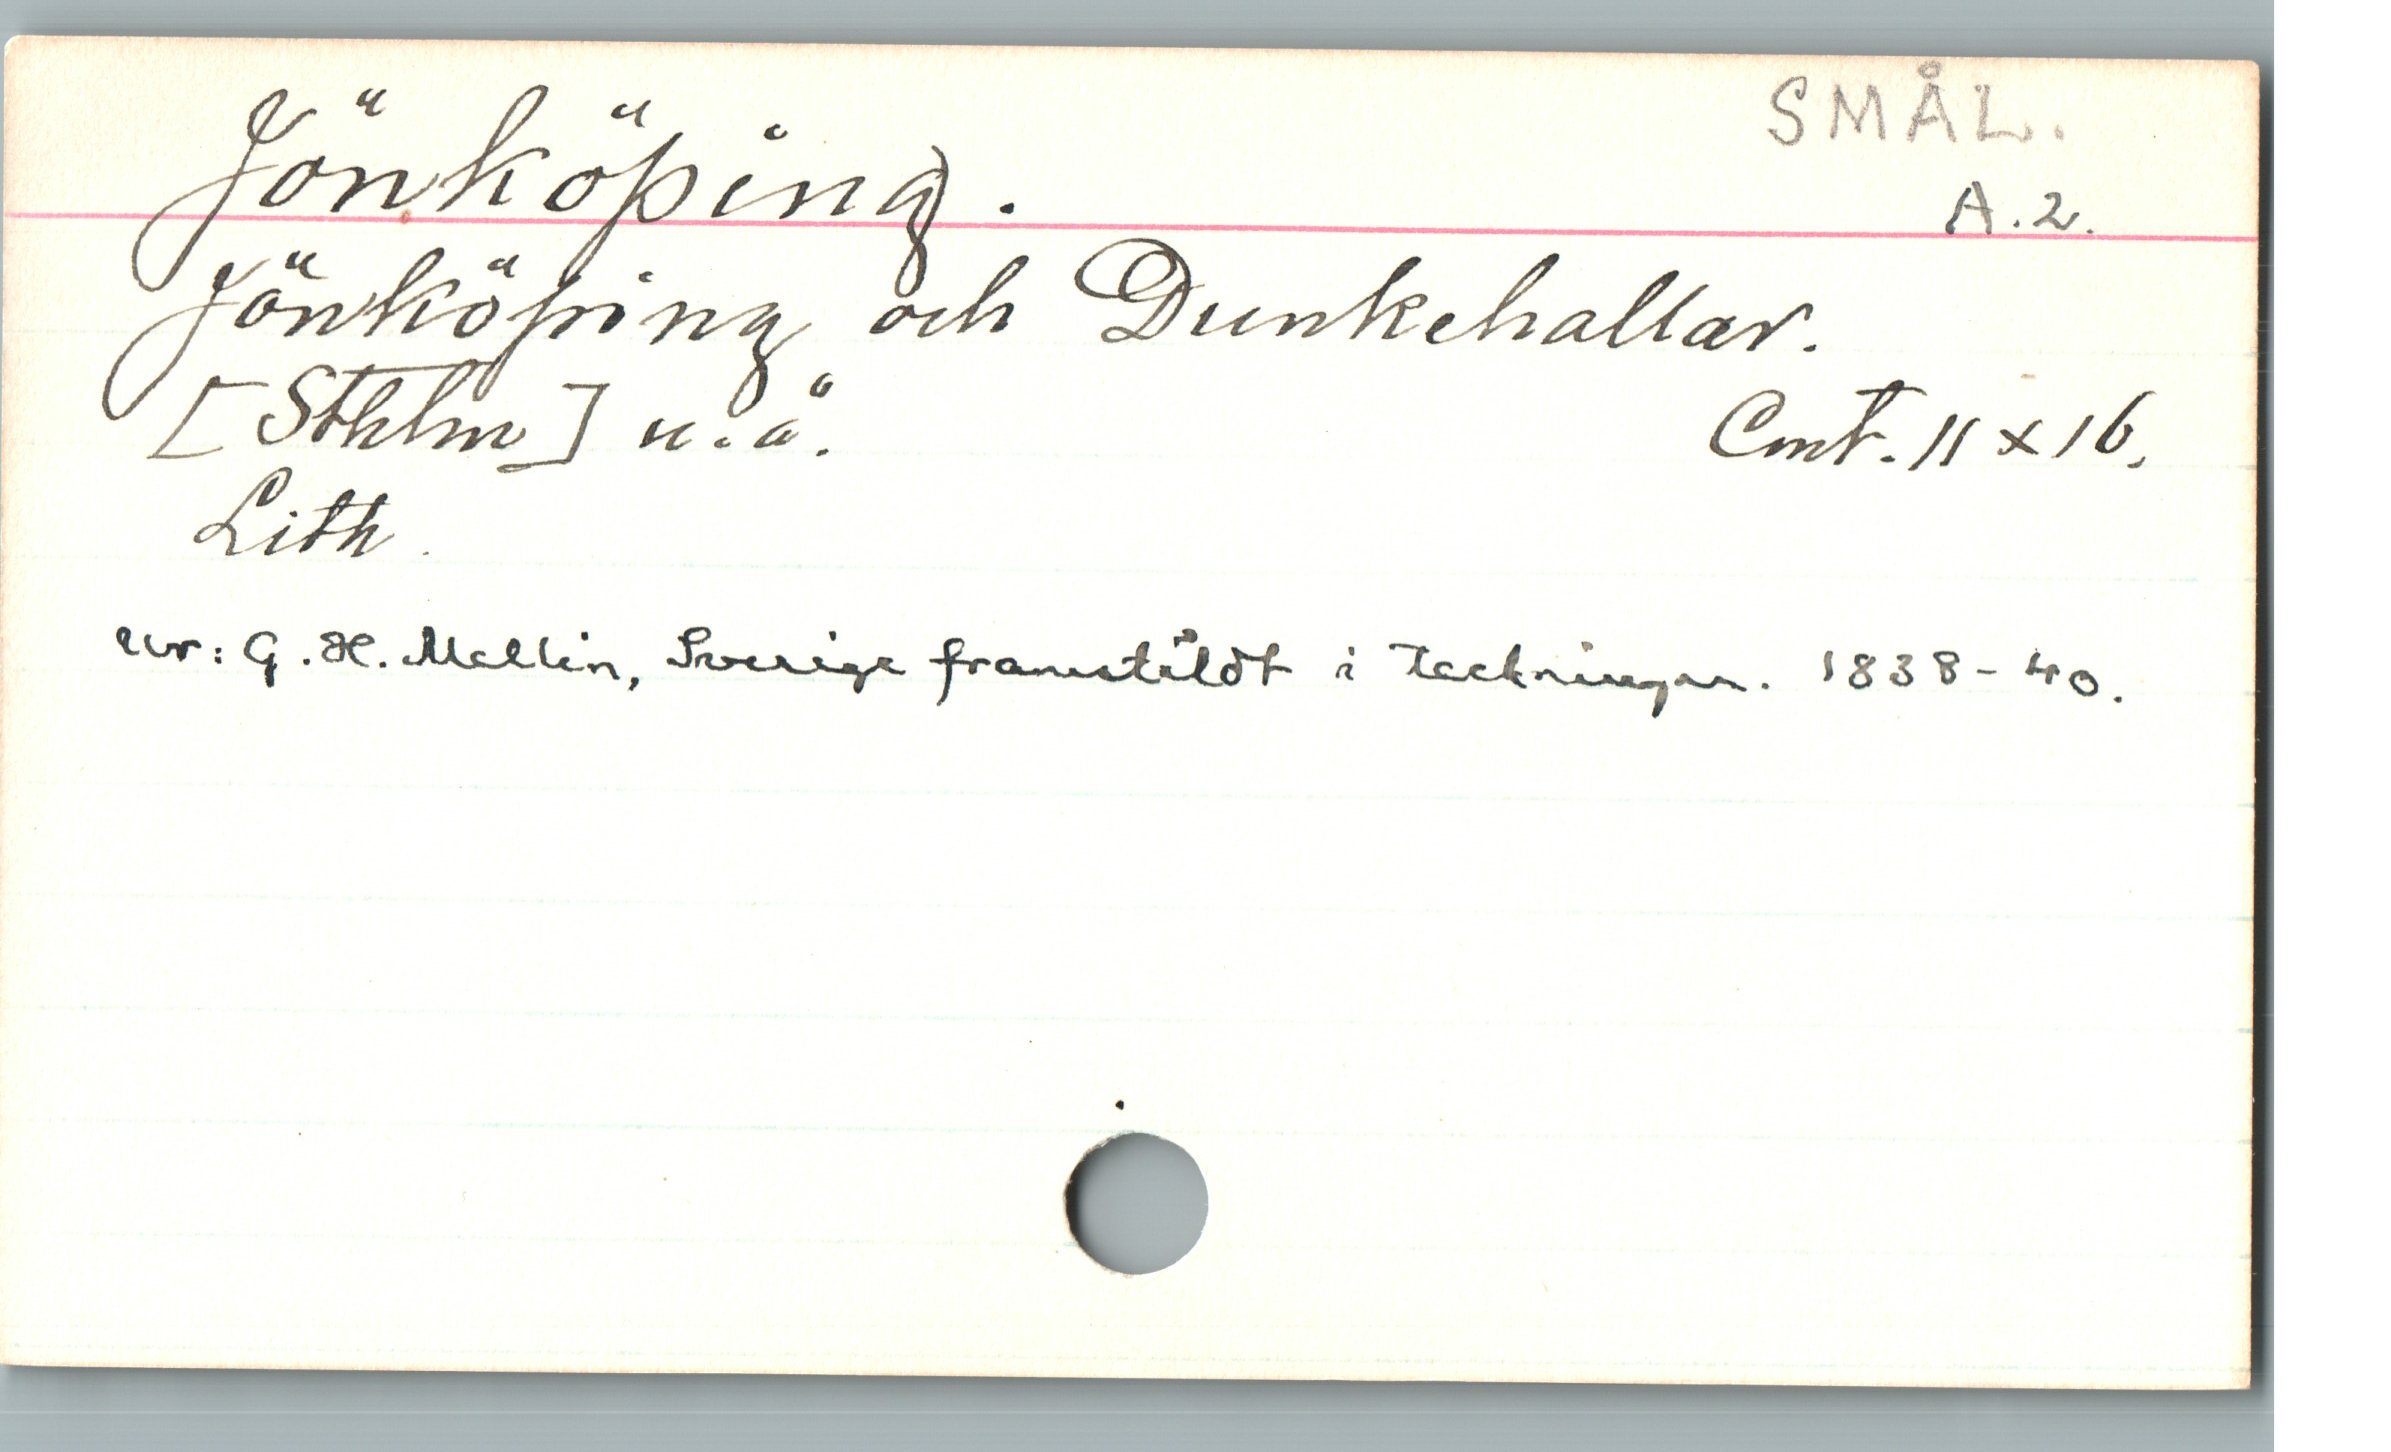 SMÅL.
Jönköping.
A.2.
Jönköping och Dunkehallar.
[Sthlm] u.å.
Cmt. 11 x 16.
Lith.
Ur: G. H. Mellin, Sverige framstäldt i teckningar. 1838-40.